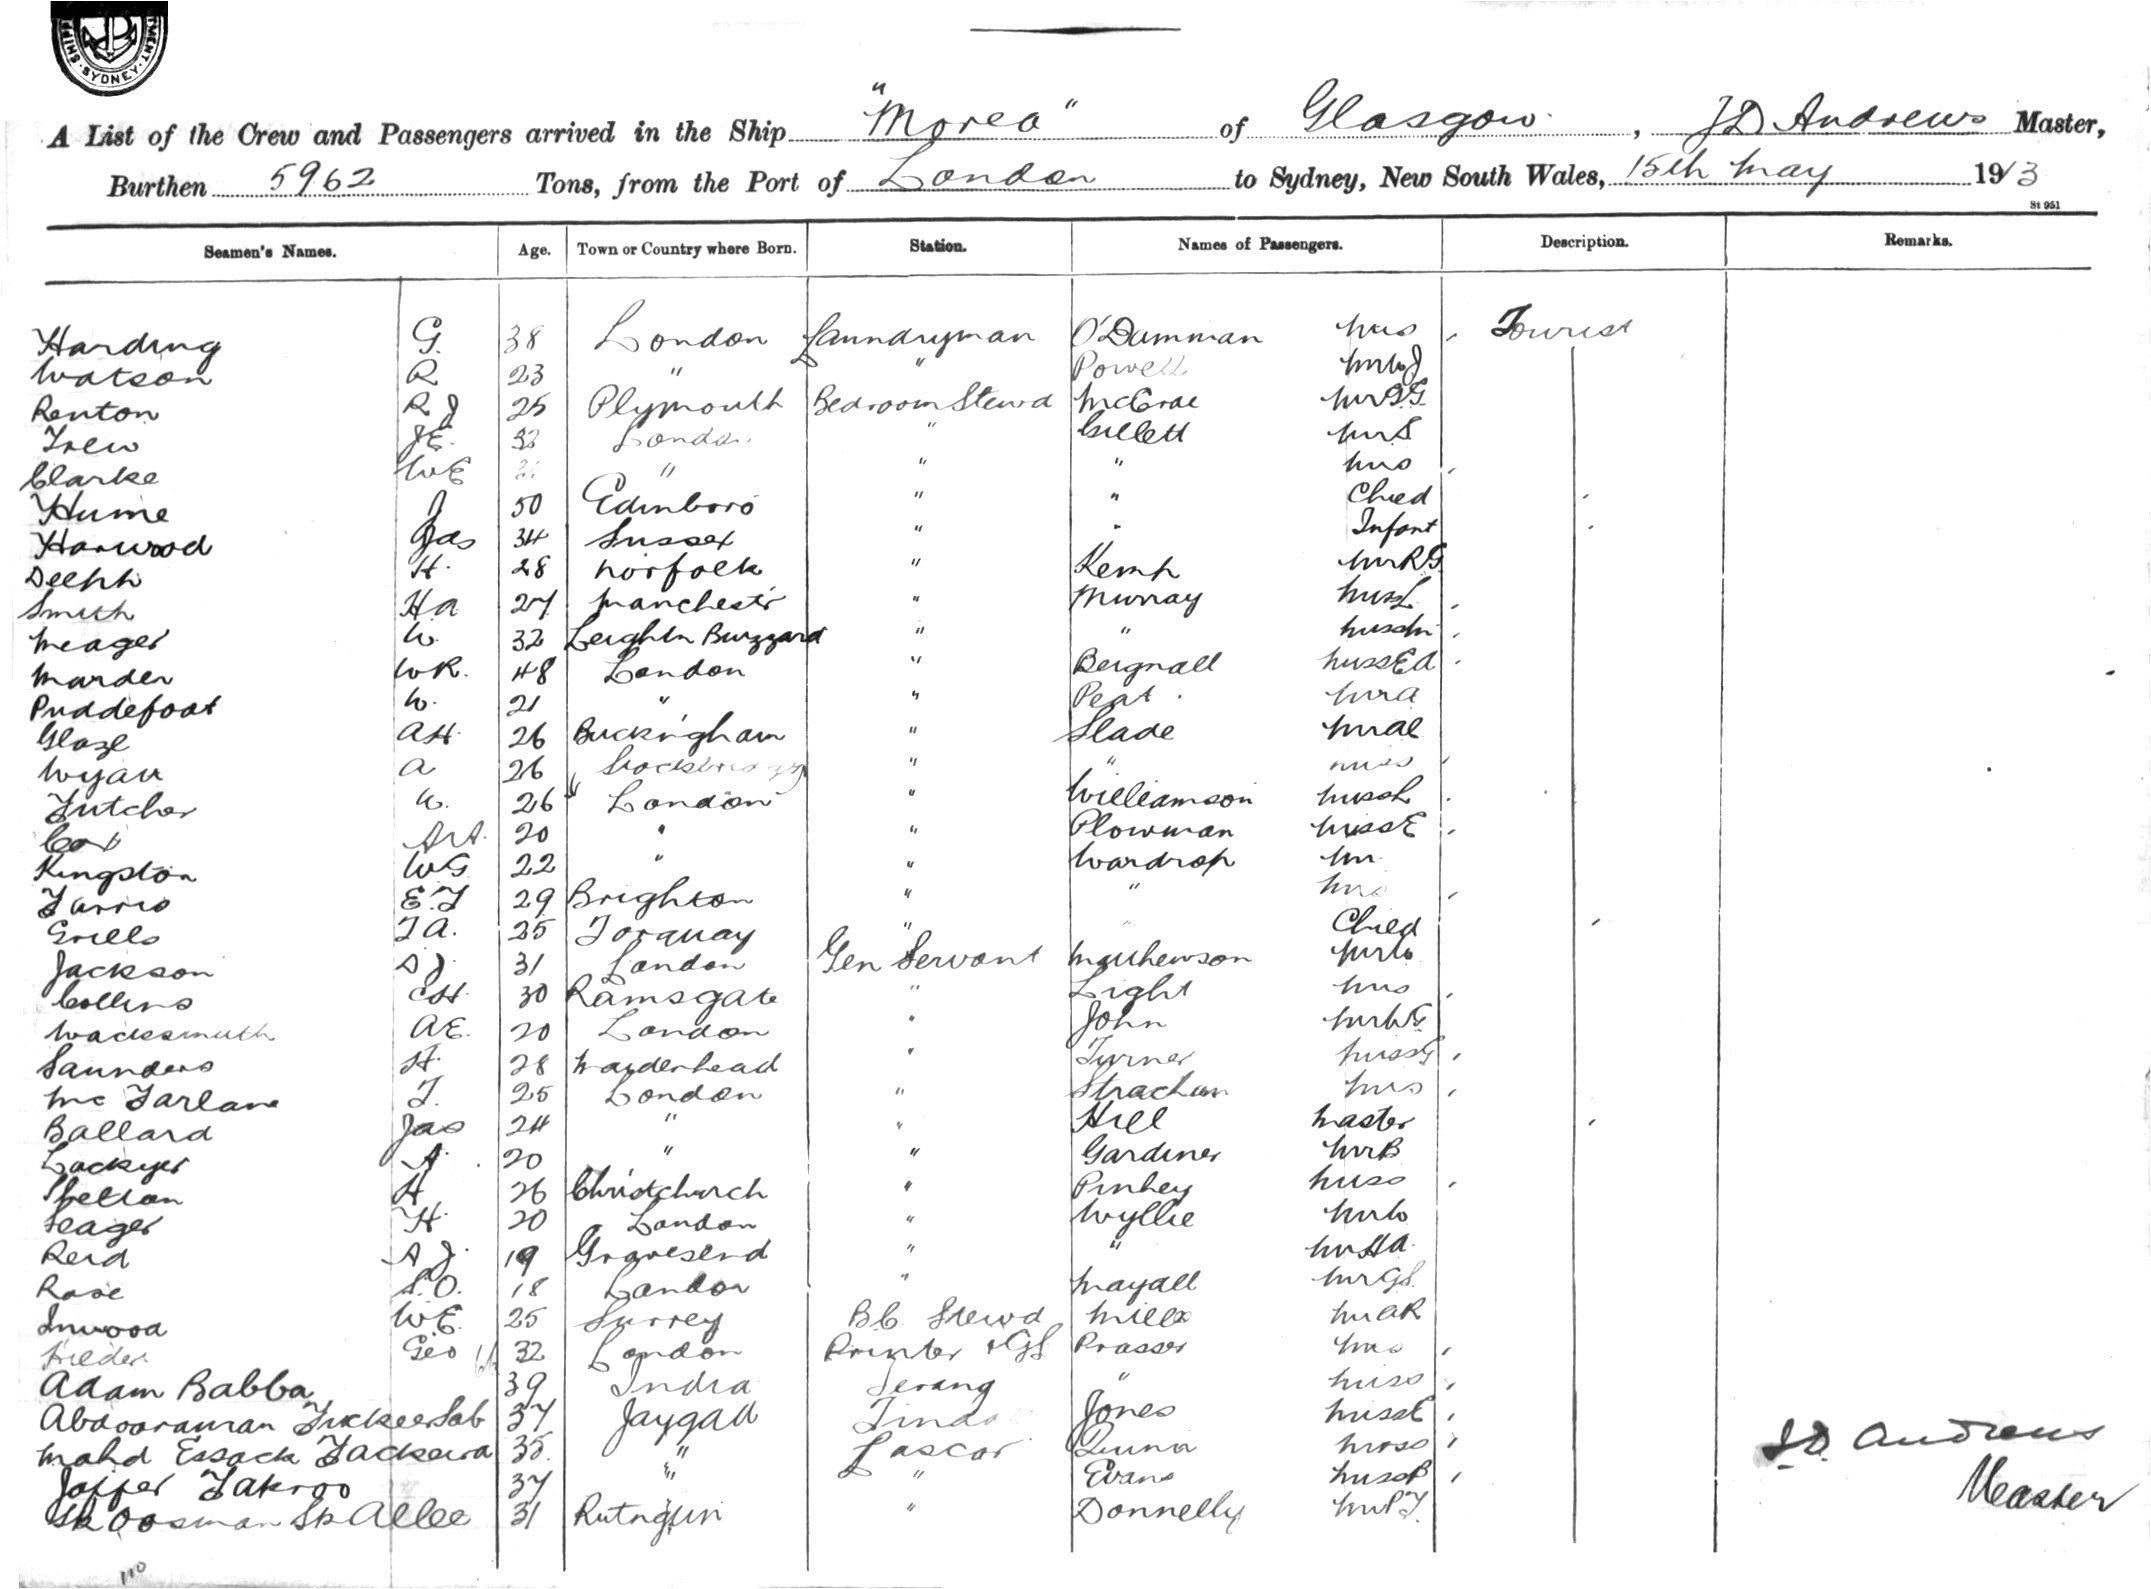 SHIPP MENT SYDNEY
A List of the Crew and Passengers arrived in the Ship "Morea" of Glasgow, J D Andrews Master,
Burthen 5962 Tons, from the Port of London to Sydney, New South Wales, 15th May 1913
St 951
Seamen's Names. Age. Town or Country where Born. Station. Names of Passengers. Description. Remarks.
Harding G. 38 London Laundryman O'Damman Mrs Tourist
Watson R 23 " " Powell Mr W J
Renton R J 25 Plymouth Bedroom Stewd McCrae Mr G G
Trew J E. 32 London " Gillett Mr S
Clarke W E " " " Mrs
Hume J 50 Edinboro " " Child
Harwood Jas 34 Sussex " " Infant
H. 28 Norfolk " Kemp Mr R G
Smith Ha 27 Manchestr " Murray Miss L
Meager W. 32 Leightn Buzzard " " Miss M
Marder W R. 48 London " Beignall Miss E A
Puddefoot W. 21 " " Peat Mr A
Glaze A H. 26 Buckingham " Slade Mr Al
Wyatt A 26 " " Miss
Futcher W. 26 London " Williamson Miss L
Cox Art. 20 " " Plowman Miss E
Kingston W G 22 " " Wardrop Mr
Farris E. F 29 Brighton " " Mrs
Grills F A. 25 Torquay " " Child
Jackson A J. 31 London Gen Servant Mathewson Mr W
Collins C H. 30 Ramsgate " Light Mrs
Wacksmuth A E. 20 London " John Mr W G
Saunders H. 28 Maidenhead " Turner Miss G
Mc Farlane T. 25 London " Strachan Mrs
Ballard Jas 24 " " Hill Master
Lockyer A. 20 " " Gardiner Mr B
Shelton H 26 Christchurch " Pinhey Miss
Seager H. 20 London " Wyllie Mr W
Reid A J. 19 Gravesend " " Mr H A.
Rose S. O. 18 London " Mayall Mr G S.
Inwood W. E. 25 Surrey B C Stewd Mills Mr A R
Fielder Geo 32 London Printer & GS Prasser Mrs
Adam Babba 39 India Serang " Miss
Abdooraman Fuckeer Sab 37 Jaygad Tindal Jones Miss E
Mahd Essack Fackeera 35. " Lascar Quinn Miss
Jaffer Fakroo 37 " " Evans Miss B
Sk Oosman Sk Allee 31 Rutngiri " Donnelly Mr P J.
J D. Andrews
Master
110